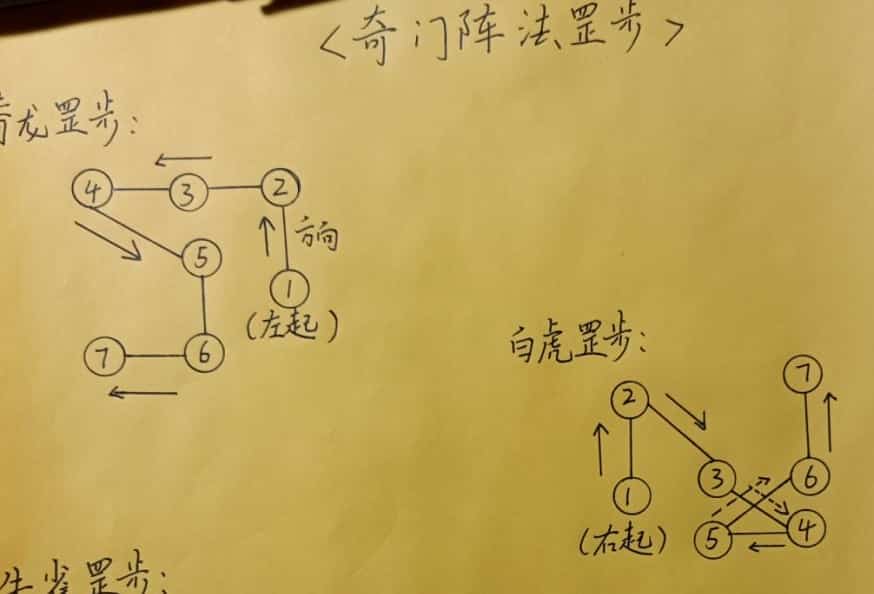 <奇门阵法罡步>
青龙罡步:
④ ③ ②
⑤ 方向
①
(左起)
⑦ ⑥
白虎罡步:
② ⑦
① ③ ⑥
(右起) ⑤ ④
朱雀罡步: